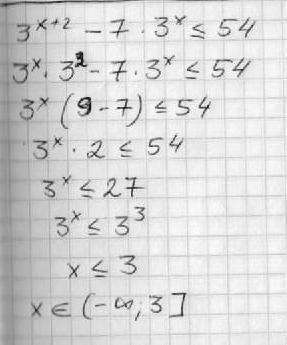 3^{x+2} - 7 · 3^x ≤ 54
3^x · 3^2 - 7 · 3^x ≤ 54
3^x (9 - 7) ≤ 54
3^x · 2 ≤ 54
3^x ≤ 27
3^x ≤ 3^3
x ≤ 3
x ∈ (-∞; 3]